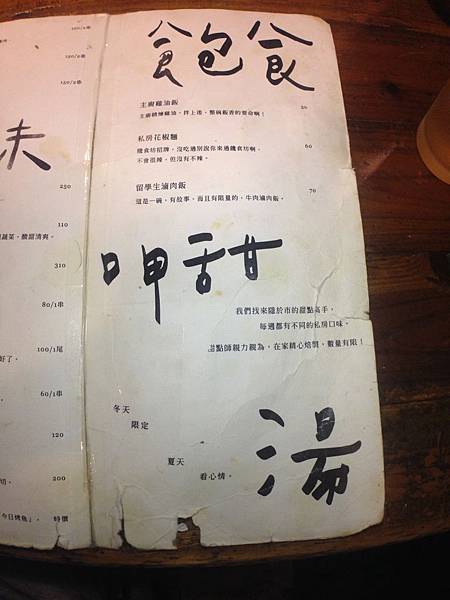 飽食
主廚雞油飯 50
主廚精煉雞油，拌上進，整碗飯香的要命啊！
私房花椒麵 60
饞食坊招牌，沒吃過別說你來過饞食坊啊。
不會很辣，但沒有不辣。
留學生滷肉飯 70
這是一碗，有故事，而且有限量的，牛肉滷肉飯。
呷甜
我們找來隱於市的甜點高手，
每週都有不同的私房口味。
甜點師親力親為，在家精心焙製，數量有限！
湯
冬天
限定
夏天
看心情。
味
120/2串
120/2串
250
110
酸甜清爽。
310
80/1串
100/1尾
好了。
60/1串
120
200
今日烤魚」， 特價